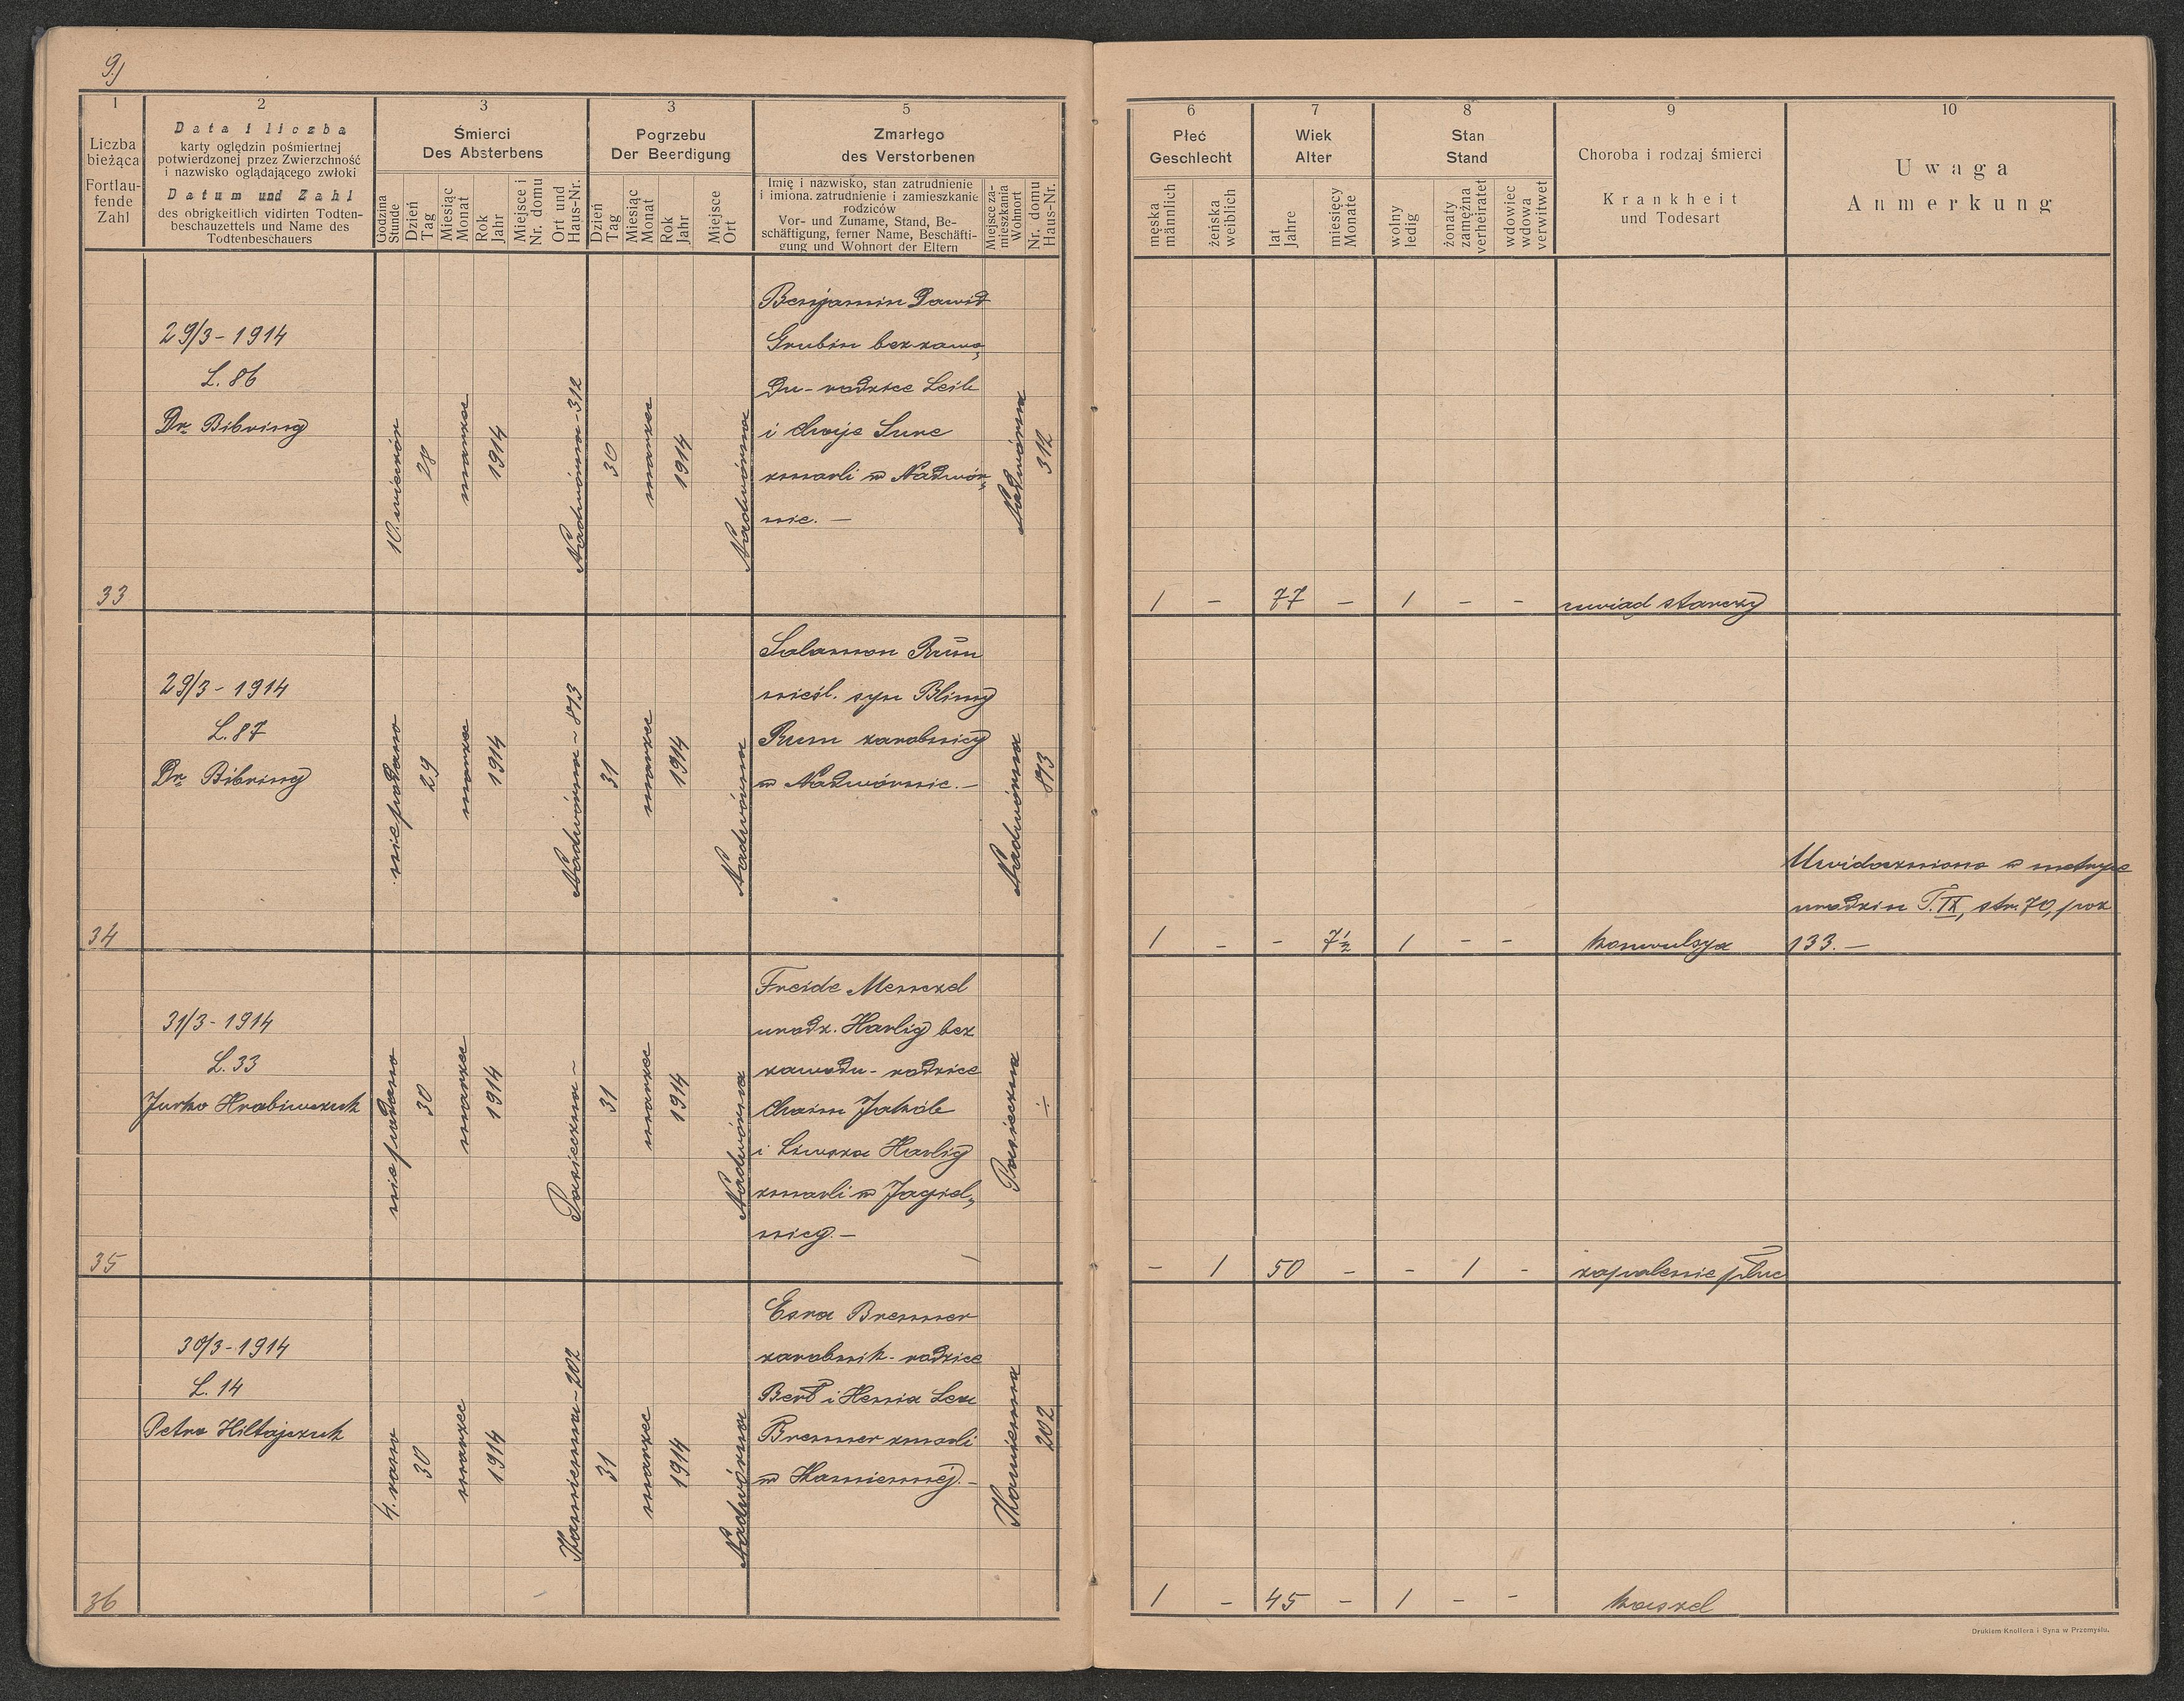 9.)
1
Liczba
bieżąca
Fortlau-
fende
Zahl
2
Data i liczba
karty oględzin pośmiertnej
potwierdzonej przez Zwierzchność
i nazwisko oglądającego zwłoki
Datum und Zahl
des obrigkeitlich vidirten Todten-
beschauzettels und Name des
Todtenbeschauers
3
Śmierci
Des Absterbens
Godzina
Stunde
Dzień
Tag
Miesiąc
Monat
Rok
Jahr
Miejsce i
Nr. domu
Ort und
Haus-Nr.
3
Pogrzebu
Der Beerdigung
Dzień
Tag
Miesiąc
Monat
Rok
Jahr
Miejsce
Ort
5
Zmarłego
des Verstorbenen
Imię i nazwisko, stan zatrudnienie
i imiona. zatrudnienie i zamieszkanie
rodziców
Vor- und Zuname, Stand, Be-
schäftigung, ferner Name, Beschäfti-
gung und Wohnort der Eltern
Miejsce za-
mieszkania
Wohnort
Nr. domu
Haus-Nr.
6
Płeć
Geschlecht
męska
männlich
żeńska
weiblich
7
Wiek
Alter
lat
Jahre
miesięcy
Monate
8
Stan
Stand
wolny
ledig
żonaty
zamężna
verheiratet
wdowiec
wdowa
verwitwet
9
Choroba i rodzaj śmierci
Krankheit
und Todesart
10
Uwaga
Anmerkung
33
29/3 - 1914
L. 86
Dr. Bibring
10. wieczór
28
marzec
1914
Nadwórna - 312
30
marzec
1914
Nadwórna
Benjamin Dawid
Grubin bez zawo„
du - rodzice Leib
i Chwje Sure
zmarli w Nadwór„
nie. —
Nadwórna
312
1 - 77 - 1 - -
uwiąd starczy
34
29/3 - 1914
L. 87
Dr. Bibring
nie podano
29
marzec
1914
Nadwórna - 813
31
marzec
1914
Nadwórna
Salamon Rum
nieśl. syn Blimy
Rum zarobnicy
w Nadwórnie. —
Nadwórna
813
1 - - 7½ 1 - -
konwulsya
Uwidoczniono w metryce
urodzin T. IX, str. 70, poz
133. —
35
31/3 - 1914
L. 33
Jurko Hrabiwczuk
nie podano
30
marzec
1914
Pasieczna -
31
marzec
1914
Nadwórna
Freide Menczel
urodz. Harlig bez
zawodu - rodzice
Chaim Jakób
i Harlig
zmarli w Jagiel„
nicy. —
Pasieczna
÷
- 1 50 - - 1 -
zapalenie płuc
36
30/3 - 1914
L. 14
Petro Hiltajczuk
4. rano
30
marzec
1914
Kamienna - 202
31
marzec
1914
Nadwórna
Esra Bremmer
zarobnik - rodzice
Berl i Henia Lea
Bremmer zmarli
w Kamiennéj. —
Kamienna
202
1 - 45 - 1 - -
kaszel
Drukiem Knollera i Syna w Przemyślu.